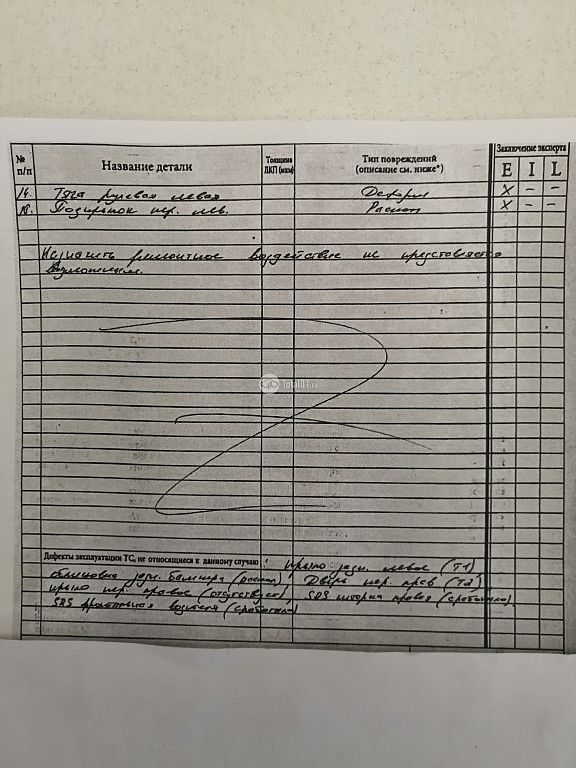 № п/п Название детали Толщина ЛКП (мкм) Тип повреждений (описание см. ниже*) Заключение эксперта
E I L
Тяга рулевая левая Деформ X – –
18. Подкрылок пер. лев. Раскол X – –
Назначить ремонтное воздействие не представляется
возможным.
Total01.ru
Дефекты эксплуатации ТС, не относящиеся к данному случаю: крыло задн. левое (Т1),
облицовка задн. бампера (раскол) Дверь пер. прав (Т2),
крыло пер. правое (отсутствует) SRS шторка правая (сработала)
SRS фронтальная водителя (сработала)